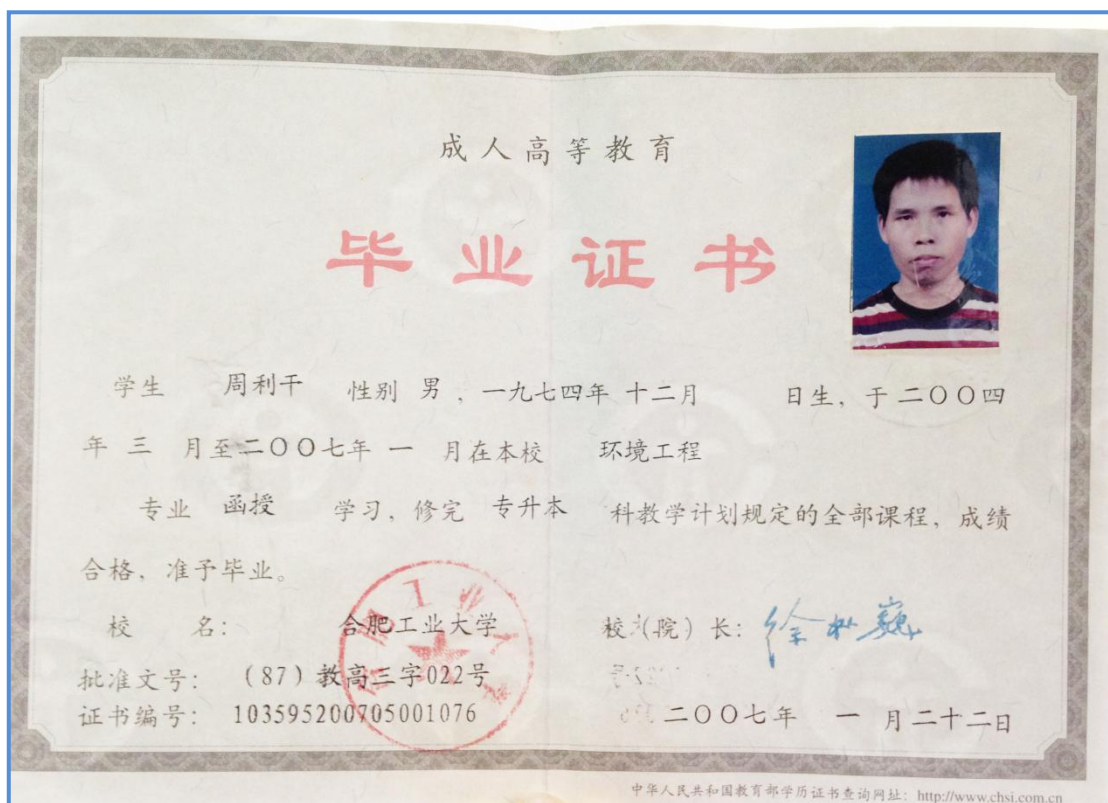 成人高等教育
毕业证书
学生 周利干 性别 男，一九七四年 十二月 日生，于二〇〇四
年 三 月至二〇〇七年 一 月在本校 环境工程
专业 函授 学习，修完 专升本 科教学计划规定的全部课程，成绩
合格，准予毕业。
校 名： 合肥工业大学 校（院）长：
批准文号： （87）教高三字022号
证书编号： 103595200705001076 二〇〇七年 一 月二十二日
中华人民共和国教育部学历证书查询网址：http://www.chsi.com.cn